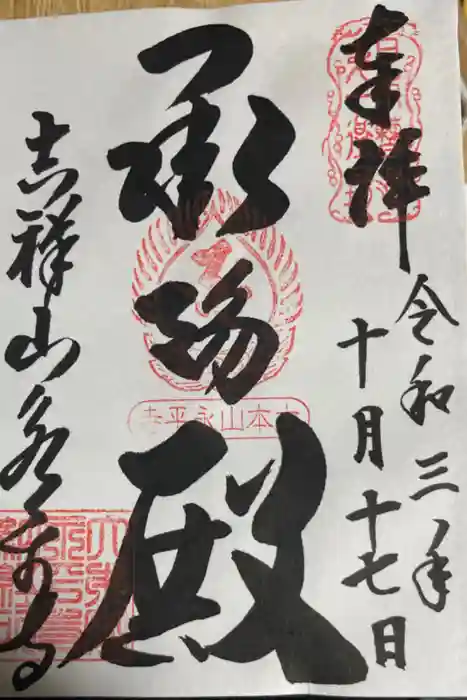 奉拝
令和三年
十月十七日
承陽殿
大本山永平寺
吉祥山永平寺